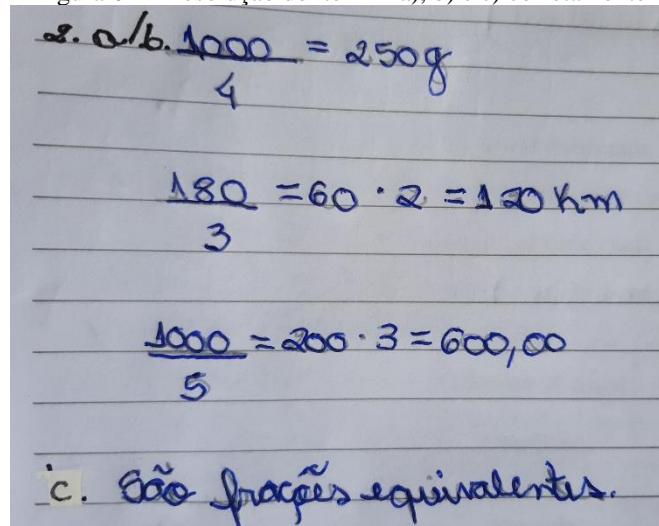 2. a/b. 1000/4 = 250g
180/3 = 60 · 2 = 120 Km
1000/5 = 200 · 3 = 600,00
c. São frações equivalentes.